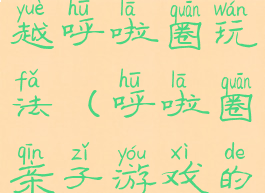 yuè hū lā quān wán
越呼啦圈玩
fǎ hū lā quān
法（呼啦圈
qīn zǐ yóu xì de
亲子游戏的